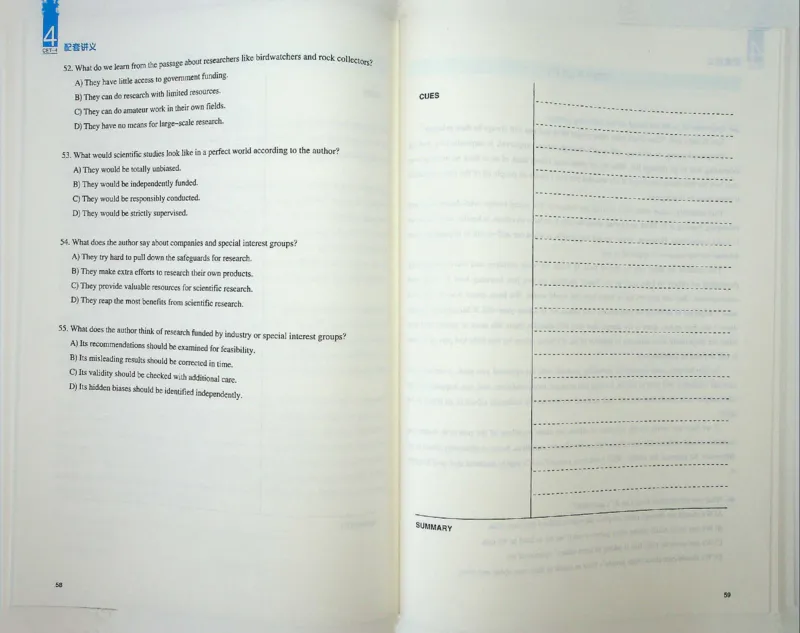 4
CET-4
配套讲义
52. What do we learn from the passage about researchers like birdwatchers and rock collectors?
A) They have little access to government funding.
B) They can do research with limited resources.
C) They can do amateur work in their own fields.
D) They have no means for large-scale research.
53. What would scientific studies look like in a perfect world according to the author?
A) They would be totally unbiased.
B) They would be independently funded.
C) They would be responsibly conducted.
D) They would be strictly supervised.
54. What does the author say about companies and special interest groups?
A) They try hard to pull down the safeguards for research.
B) They make extra efforts to research their own products.
C) They provide valuable resources for scientific research.
D) They reap the most benefits from scientific research.
55. What does the author think of research funded by industry or special interest groups?
A) Its recommendations should be examined for feasibility.
B) Its misleading results should be corrected in time.
C) Its validity should be checked with additional care.
D) Its hidden biases should be identified independently.
58
CUES
SUMMARY
59